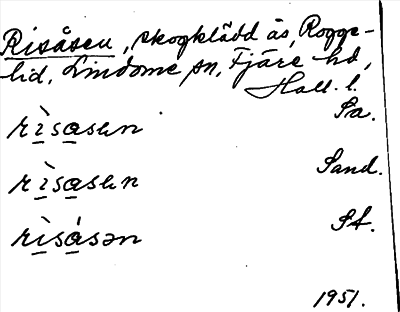 Risåsen, skogklädd ås, Rogge-
lid, Lindome sn, Fjäre hd,
Hall. l.
rìsasen Sa.
rìsasen Sand.
rìsásən St.
1951.